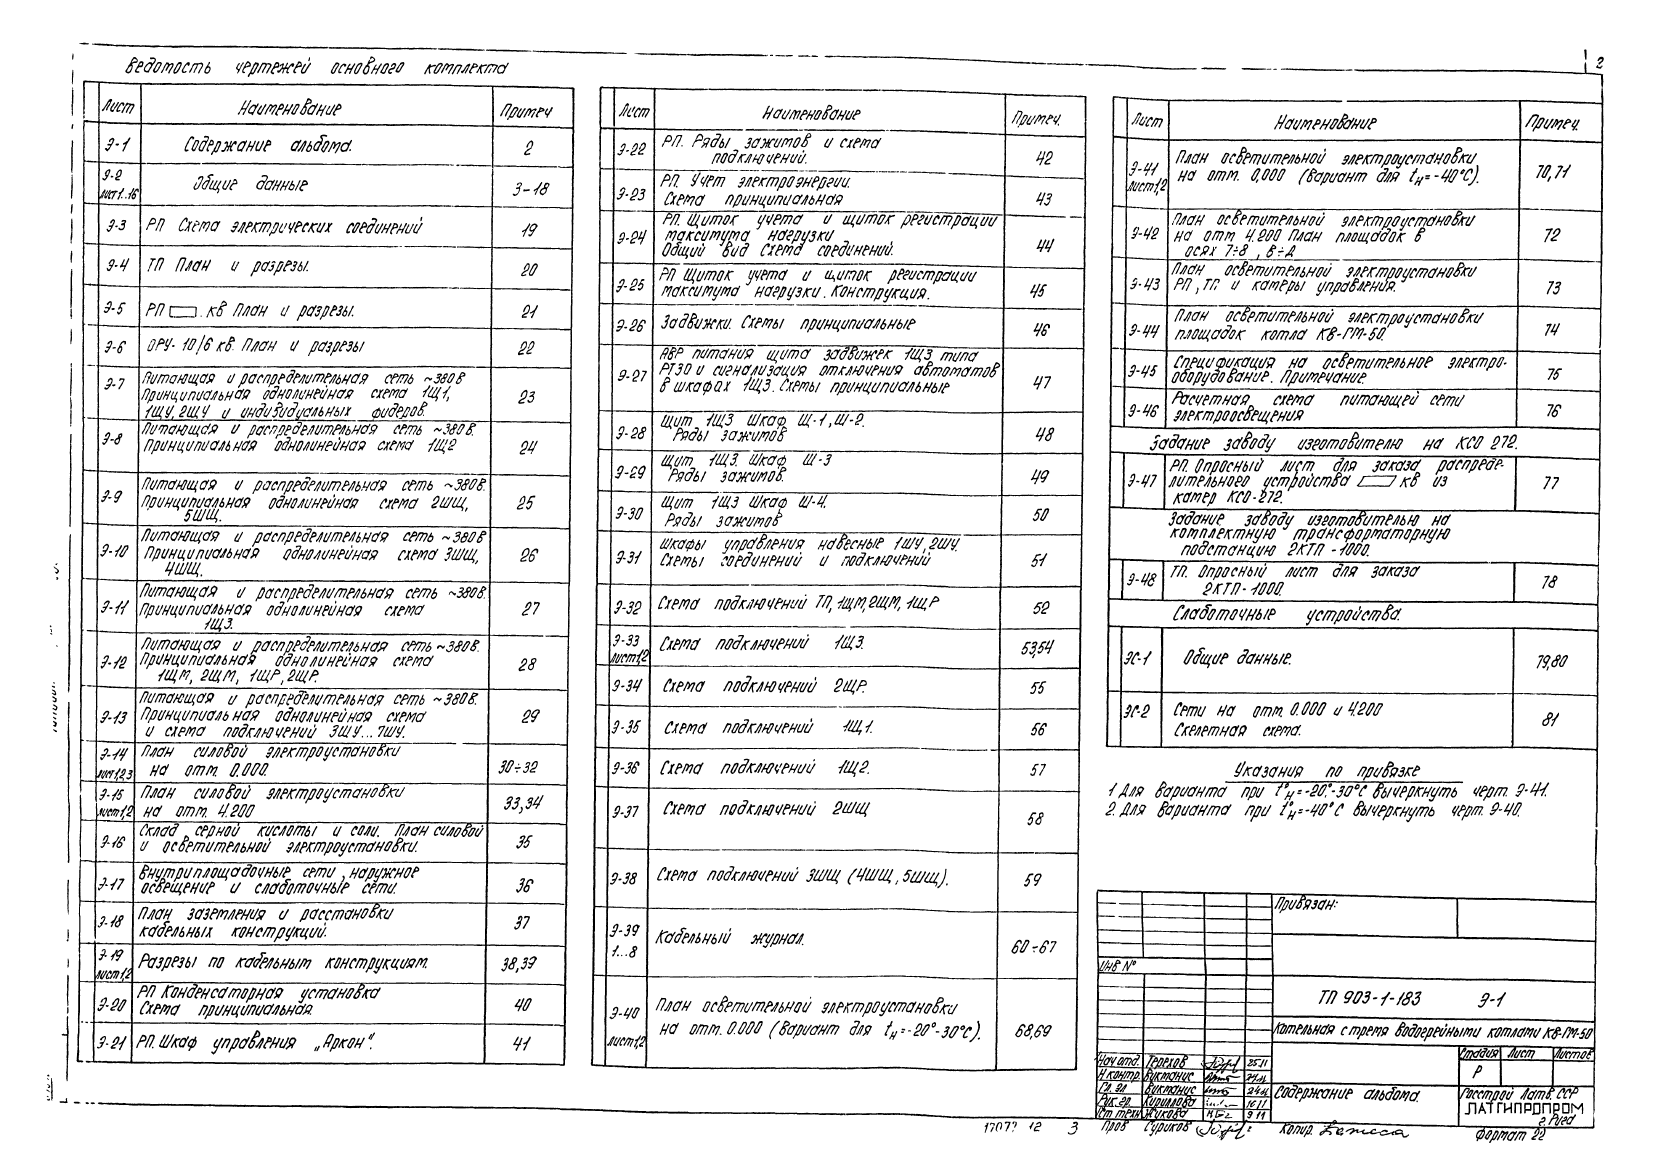 2
Ведомость чертежей основного комплекта
Лист Наименование Примеч
Э-1 Содержание альбома. 2
Э-2 лист1..16 Общие данные 3-18
Э-3 РП Схема электрических соединений 19
Э-4 ТП План и разрезы. 20
Э-5 РП . кв План и разрезы. 21
Э-6 ОРУ- 10/6 кв. План и разрезы 22
Э-7 Питающая и распределительная сеть ~380в
Принципиальная однолинейная схема 1Щ1, 23
1ШУ, 2ШУ и индивидуальных фидеров.
Э-8 Питающая и распределительная сеть ~380в.
Принципиальная однолинейная схема 1Щ2 24
Э-9 Питающая и распределительная сеть ~380в.
Принципиальная однолинейная схема 2ШЩ, 25
5ШЩ.
Э-10 Питающая и распределительная сеть ~380в
Принципиальная однолинейная схема 3ШЩ, 26
4ШЩ.
Э-11 Питающая и распределительная сеть ~380в
Принципиальная однолинейная схема 27
1Щ3.
Э-12 Питающая и распределительная сеть ~380в.
Принципиальная однолинейная схема 28
1ЩМ, 2ЩМ, 1ЩР, 2ЩР.
Э-13 Питающая и распределительная сеть ~380в.
Принципиальная однолинейная схема 29
и схема подключений 3ШУ...7ШУ.
Э-14 План силовой электроустановки
лист1,2,3 на отм. 0.000. 30÷32
Э-15 План силовой электроустановки
лист1,2 на отм. 4.200 33,34
Э-16 Склад серной кислоты и соли. План силовой
и осветительной электроустановки. 35
Э-17 Внутриплощадочные сети, наружное
освещение и слаботочные сети. 36
Э-18 План заземления и расстановки
кабельных конструкций. 37
Э-19 лист1,2 Разрезы по кабельным конструкциям. 38,39
Э-20 РП Конденсаторная установка
Схема принципиальная 40
Э-21 РП. Шкаф управления „Аркон". 41
Лист Наименование Примеч.
Э-22 РП. Ряды зажимов и схема
подключений. 42
Э-23 РП. Учет электроэнергии.
Схема принципиальная 43
Э-24 РП. Щиток учета и щиток регистрации
максимума нагрузки
Общий вид Схема соединений. 44
Э-25 РП Щиток учета и щиток регистрации
максимума нагрузки. Конструкция. 45
Э-26 Задвижки. Схемы принципиальные 46
Э-27 АВР питания щита задвижек 1Щ3 типа
РТЗО и сигнализация отключения автоматов 47
в шкафах 1Щ3. Схемы принципиальные
Э-28 Щит 1Щ3 Шкаф Щ-1, Ш-2.
Ряды зажимов 48
Э-29 Щит 1Щ3. Шкаф Ш-3
Ряды зажимов. 49
Э-30 Щит 1Щ3 Шкаф Ш-4.
Ряды зажимов 50
Э-31 Шкафы управления навесные 1ШУ, 2ШУ.
Схемы соединений и подключений 51
Э-32 Схема подключений ТП, 1ЩМ, 2ЩМ, 1ЩР 52
Э-33 лист1,2 Схема подключений 1Щ3. 53,54
Э-34 Схема подключений 2ЩР. 55
Э-35 Схема подключений 1Щ1. 56
Э-36 Схема подключений 1Щ2. 57
Э-37 Схема подключений 2ШЩ 58
Э-38 Схема подключений 3ШЩ (4ШЩ, 5ШЩ). 59
Э-39 1...8 Кабельный журнал. 60÷67
Э-40 План осветительной электроустановки
лист1,2 на отм. 0.000 (вариант для tн=-20°-30°С). 68,69
Лист Наименование Примеч.
Э-41 План осветительной электроустановки
лист1,2 на отм. 0,000 (вариант для tн=-40°С). 70,71
Э-42 План осветительной электроустановки
на отм 4.200 План площадок в 72
осях 7÷8, в÷д
Э-43 План осветительной электроустановки
РП, ТП и камеры управления. 73
Э-44 План осветительной электроустановки
площадок котла КВ-ГМ-50. 74
Э-45 Спецификация на осветительное электро-
оборудование. Примечание. 75
Э-46 Расчетная схема питающей сети
электроосвещения 76
Задание заводу изготовителю на КСО 272.
Э-47 РП. Опросный лист для заказа распреде-
лительного устройства кв из 77
камер КСО-272.
Задание заводу изготовителю на
комплектную трансформаторную
подстанцию 2КТП -1000.
Э-48 ТП. Опросный лист для заказа
2КТП-1000. 78
Слаботочные устройства.
ЭС-1 Общие данные. 79,80
ЭС-2 Сети на отм. 0.000 и 4.200
Скелетная схема. 81
Указания по привязке
1 Для варианта при t°н=-20°-30°С вычеркнуть черт. Э-41.
2. Для варианта при t°н=-40°С вычеркнуть черт. Э-40.
Привязан:
Инв №
ТП 903-1-183 Э-1
Котельная с тремя водогрейными котлами КВ-ГМ-50
Стадия Лист Листов
Р
Нач отд. Терехов 25.11
Н.контр. Виктанис
Гл. эл Виктанис 24.11
Рук. гр. Кириллова 16.11
Ст техн Жикова 9 11
Пров Суриков
Содержание альбома.
Госстрой Латв. ССР
ЛАТГИПРОПРОМ
г. Рига
Копир.
Формат 22
17077 12 3